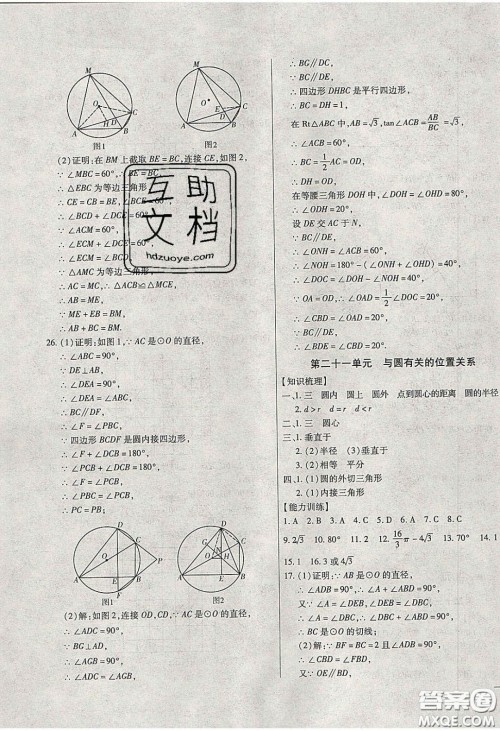 M
A
B
C
O
H
D
图1
M
A
B
C
O
D
E
图2
(2)证明:在 BM 上截取 BE=BC,连接 CE,如图 2,
∵ ∠MBC=60°,BE=BC,
∴ △EBC 为等边三角形,
∴ CE=CB=BE,∠BCE=60°,
∴ ∠BCD+∠DCE=60°,
∵ ∠ACM=60°,
∴ ∠ECM+∠DCE=60°,
∴ ∠ECM=∠BCD,
∵ △AMC 为等边三角形,
∴ AC=MC,∴ △ACB≌△MCE,
∴ AB=ME,
∵ ME+EB=BM,
∴ AB+BC=BM.
26. (1)证明:如图 1,∵ AC 是⊙O 的直径,
∴ ∠ABC=90°,
∵ DE⊥AB,
∴ ∠DEA=90°,
∴ ∠DEA=∠ABC,
∴ BC∥DF,
∴ ∠F=∠PBC,
∵ 四边形 BCDF 是圆内接四边形,
∴ ∠F+∠DCB=180°,
∵ ∠PCB+∠DCB=180°,
∴ ∠F=∠PCB,
∴ ∠PBC=∠PCB,
∴ PC=PB.
图1
图2
(2)解:如图 2,连接 OD,CD,∵ AC 是⊙O 的直径,
∴ ∠ADC=90°,
∵ BG⊥AD,
∴ ∠AGB=90°,
∴ ∠ADC=∠AGB,
∴ BG∥DC,
∵ BC∥DE,
∴ 四边形 DHBC 是平行四边形,
∴ BC=DH=1,
在 Rt△ABC 中,AB=√3,tan∠ACB=AB/BC=√3,
∴ ∠ACB=60°,
∴ BC=1/2AC=OD,
∴ DH=OD,
在等腰三角形 DOH 中,∠DOH=∠OHD=80°,
∴ ∠ODH=20°,
设 DE 交 AC 于 N,
∵ BC∥DE,
∴ ∠ONH=∠ACB=60°,
∴ ∠NOH=180°-(∠ONH+∠OHD)=40°,
∴ ∠DOC=∠DOH-∠NOH=40°,
∵ OA=OD,∴ ∠OAD=1/2∠DOC=20°,
∴ ∠CBD=∠OAD=20°,
∵ BC∥DE,
∴ ∠BDE=∠CBD=20°.
第二十一单元 与圆有关的位置关系
【知识梳理】
一、1. 三 圆内 圆上 圆外 点到圆心的距离 圆的半径
2. d>r d=r d<r
二、1. 三 圆心
三、1. 垂直于
2. (2)半径 (3)垂直于
3. (2)相等 平分
四、1. (1)圆的外切三角形
2. (1)内接三角形
【能力训练】
1. A 2. B 3. D 4. C 5. D 6. A 7. C 8. C
9. 2√3 10. 50° 11. 60° 12. 16/3π-4√3 13. 70° 14. 1
15. 1 16. 3 或 4√3
17. (1)证明:∵ AB 是⊙O 的直径,
∴ ∠ADB=90°,∴ ∠A+∠ABD=90°,
∴ BC 是⊙O 的切线;
(2)解:∵ BF=BC=2 且∠ADB=90°,
∴ ∠CBD=∠FBD,
互助
文档
hdzuoye.com
答案圈
MXQE.COM